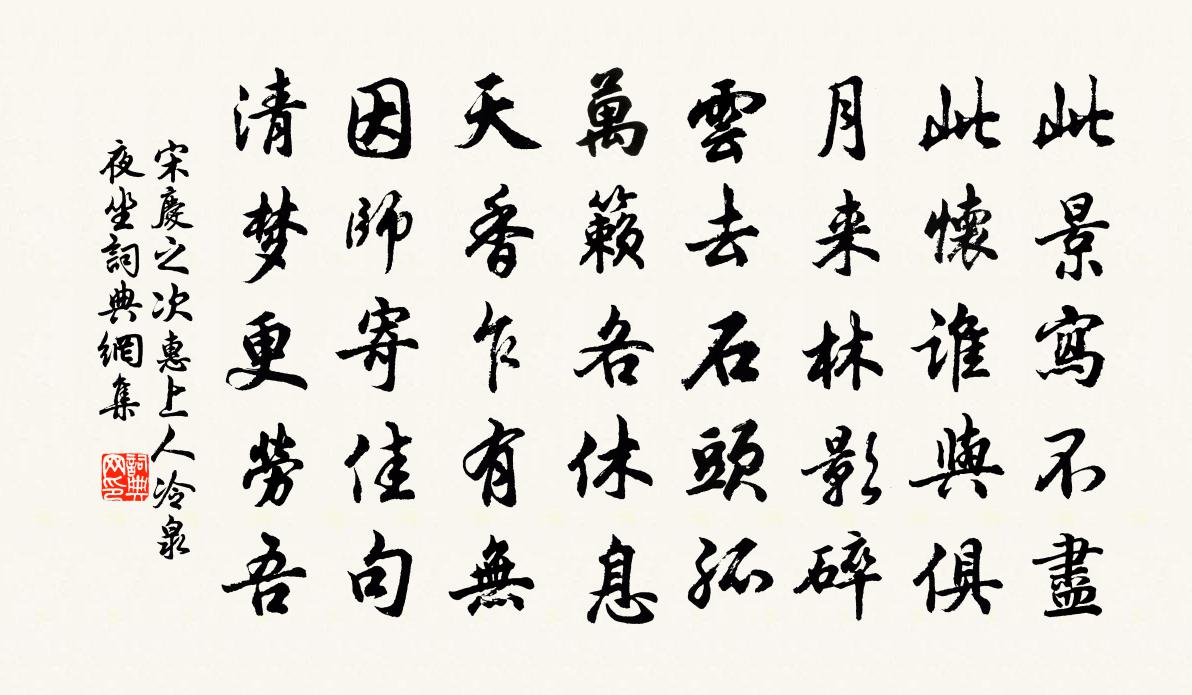 此景寫不盡
此懷誰與俱
月来林影碎
雲去石頭孤
萬籟各休息
天香乍有無
因師寄佳句
清梦更勞吾
宋慶之次惠上人冷泉
夜坐詞典網集
詞典
网印